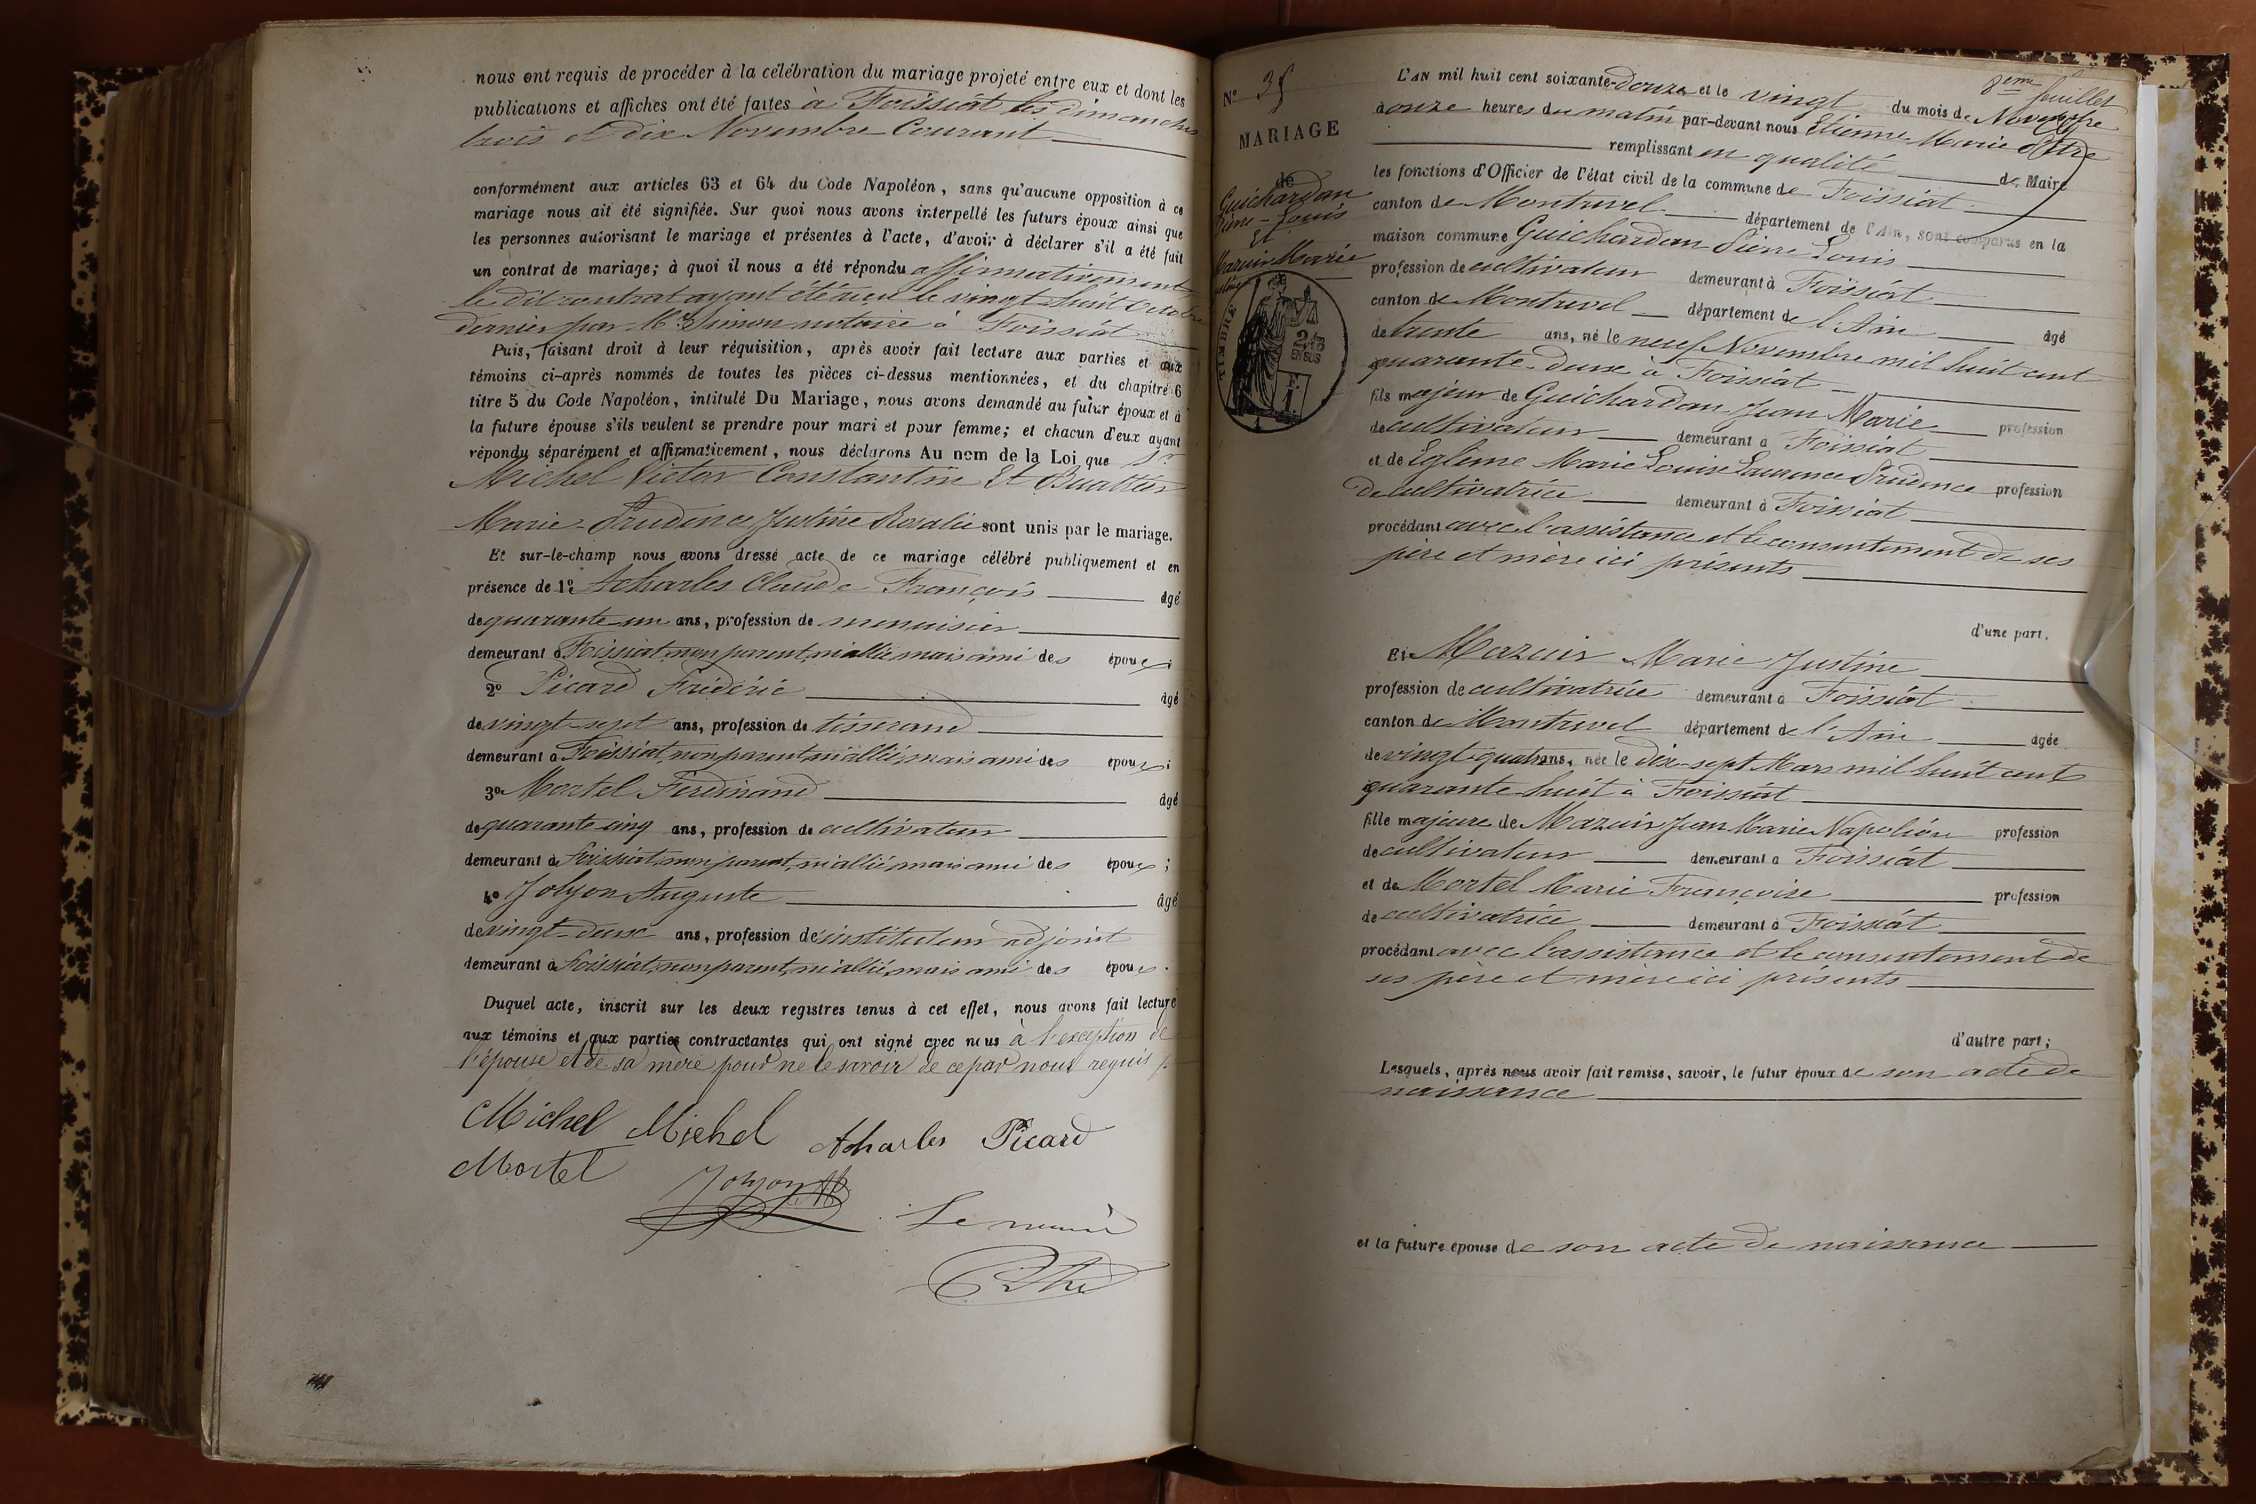 nous ont requis de procéder à la célébration du mariage projeté entre eux et dont les
publications et affiches ont été faites à Foissiat les dimanches
trois et dix Novembre Courant
conformément aux articles 63 et 64 du Code Napoléon, sans qu'aucune opposition à ce
mariage nous ait été signifiée. Sur quoi nous avons interpellé les futurs époux ainsi que
les personnes autorisant le mariage et présentes à l'acte, d'avoir à déclarer s'il a été fait
un contrat de mariage; à quoi il nous a été répondu affirmativement
le dit contrat ayant été reçu le vingt huit Octobre
dernier par Me Simon notaire à Foissiat
Puis, faisant droit à leur réquisition, après avoir fait lecture aux parties et aux
témoins ci-après nommés de toutes les pièces ci-dessus mentionnées, et du chapitre 6
titre 5 du Code Napoléon, intitulé Du Mariage, nous avons demandé au futur époux et à
la future épouse s'ils veulent se prendre pour mari et pour femme; et chacun d'eux ayant
répondu séparément et affirmativement, nous déclarons Au nom de la Loi que Sr
Michel Victor Constantin Et
Marie-Prudence Justine Rosalie sont unis par le mariage.
Et sur-le-champ nous avons dressé acte de ce mariage célébré publiquement et en
présence de 1º Acharles Claude François âgé
de quarante un ans, profession de menuisier
demeurant à Foissiat, non parent, ni allié mais ami des époux;
2º Picard Frédéric âgé
de vingt-sept ans, profession de tisserand
demeurant à Foissiat, non parent, ni allié, mais ami des époux;
3º Mortel Ferdinand âgé
de quarante cinq ans, profession de cultivateur
demeurant à Foissiat, non parent, ni allié mais ami des époux;
4º Jolyon Auguste âgé
de vingt-deux ans, profession de instituteur adjoint
demeurant à Foissiat, non parent, ni allié mais ami des époux.
Duquel acte, inscrit sur les deux registres tenus à cet effet, nous avons fait lecture
aux témoins et aux parties contractantes qui ont signé avec nous à l'exception de
l'épouse et de sa mère pour ne le savoir de ce par nous requis
Michel Michel Acharles Picard
Mortel Jolyon
Le maire
8eme feuillet
Nº 35
MARIAGE
de
Guichardan
Pierre-Louis
Et
Mazuir Marie
Justine
TIMBRE
2/10
EN SUS
L'AN mil huit cent soixante-douze et le vingt du mois de Novembre
à onze heures du matin par-devant nous Etienne Marie
remplissant en qualité de Maire
les fonctions d'Officier de l'état civil de la commune de Foissiat
canton de Montrevel département de l'AIN, sont comparus en la
maison commune Guichardan Pierre Louis
profession de cultivateur demeurant à Foissiat
canton de Montrevel département de l'Ain âgé
de trente ans, né le neuf Novembre mil huit cent
quarante-deux à Foissiat
fils majeur de Guichardan Jean Marie profession
de cultivateur demeurant à Foissiat
et de Eglème Marie Louise Laurence Prudence profession
de cultivatrice demeurant à Foissiat
procédant avec l'assistance et le consentement de ses
père et mère ici présents
d'une part.
Et Mazuir Marie Justine
profession de cultivatrice demeurant à Foissiat
canton de Montrevel département de l'Ain âgée
de vingt quatre ans, née le dix-sept Mars mil huit cent
quarante-huit à Foissiat
fille majeure de Mazuir Jean Marie Napoléon profession
de cultivateur demeurant à Foissiat
et de Mortel Marie Françoise profession
de cultivatrice demeurant à Foissiat
procédant avec l'assistance et le consentement de
ses père et mère ici présents
d'autre part;
Lesquels, après nous avoir fait remise, savoir, le futur époux de son acte de
naissance
et la future épouse de son acte de naissance